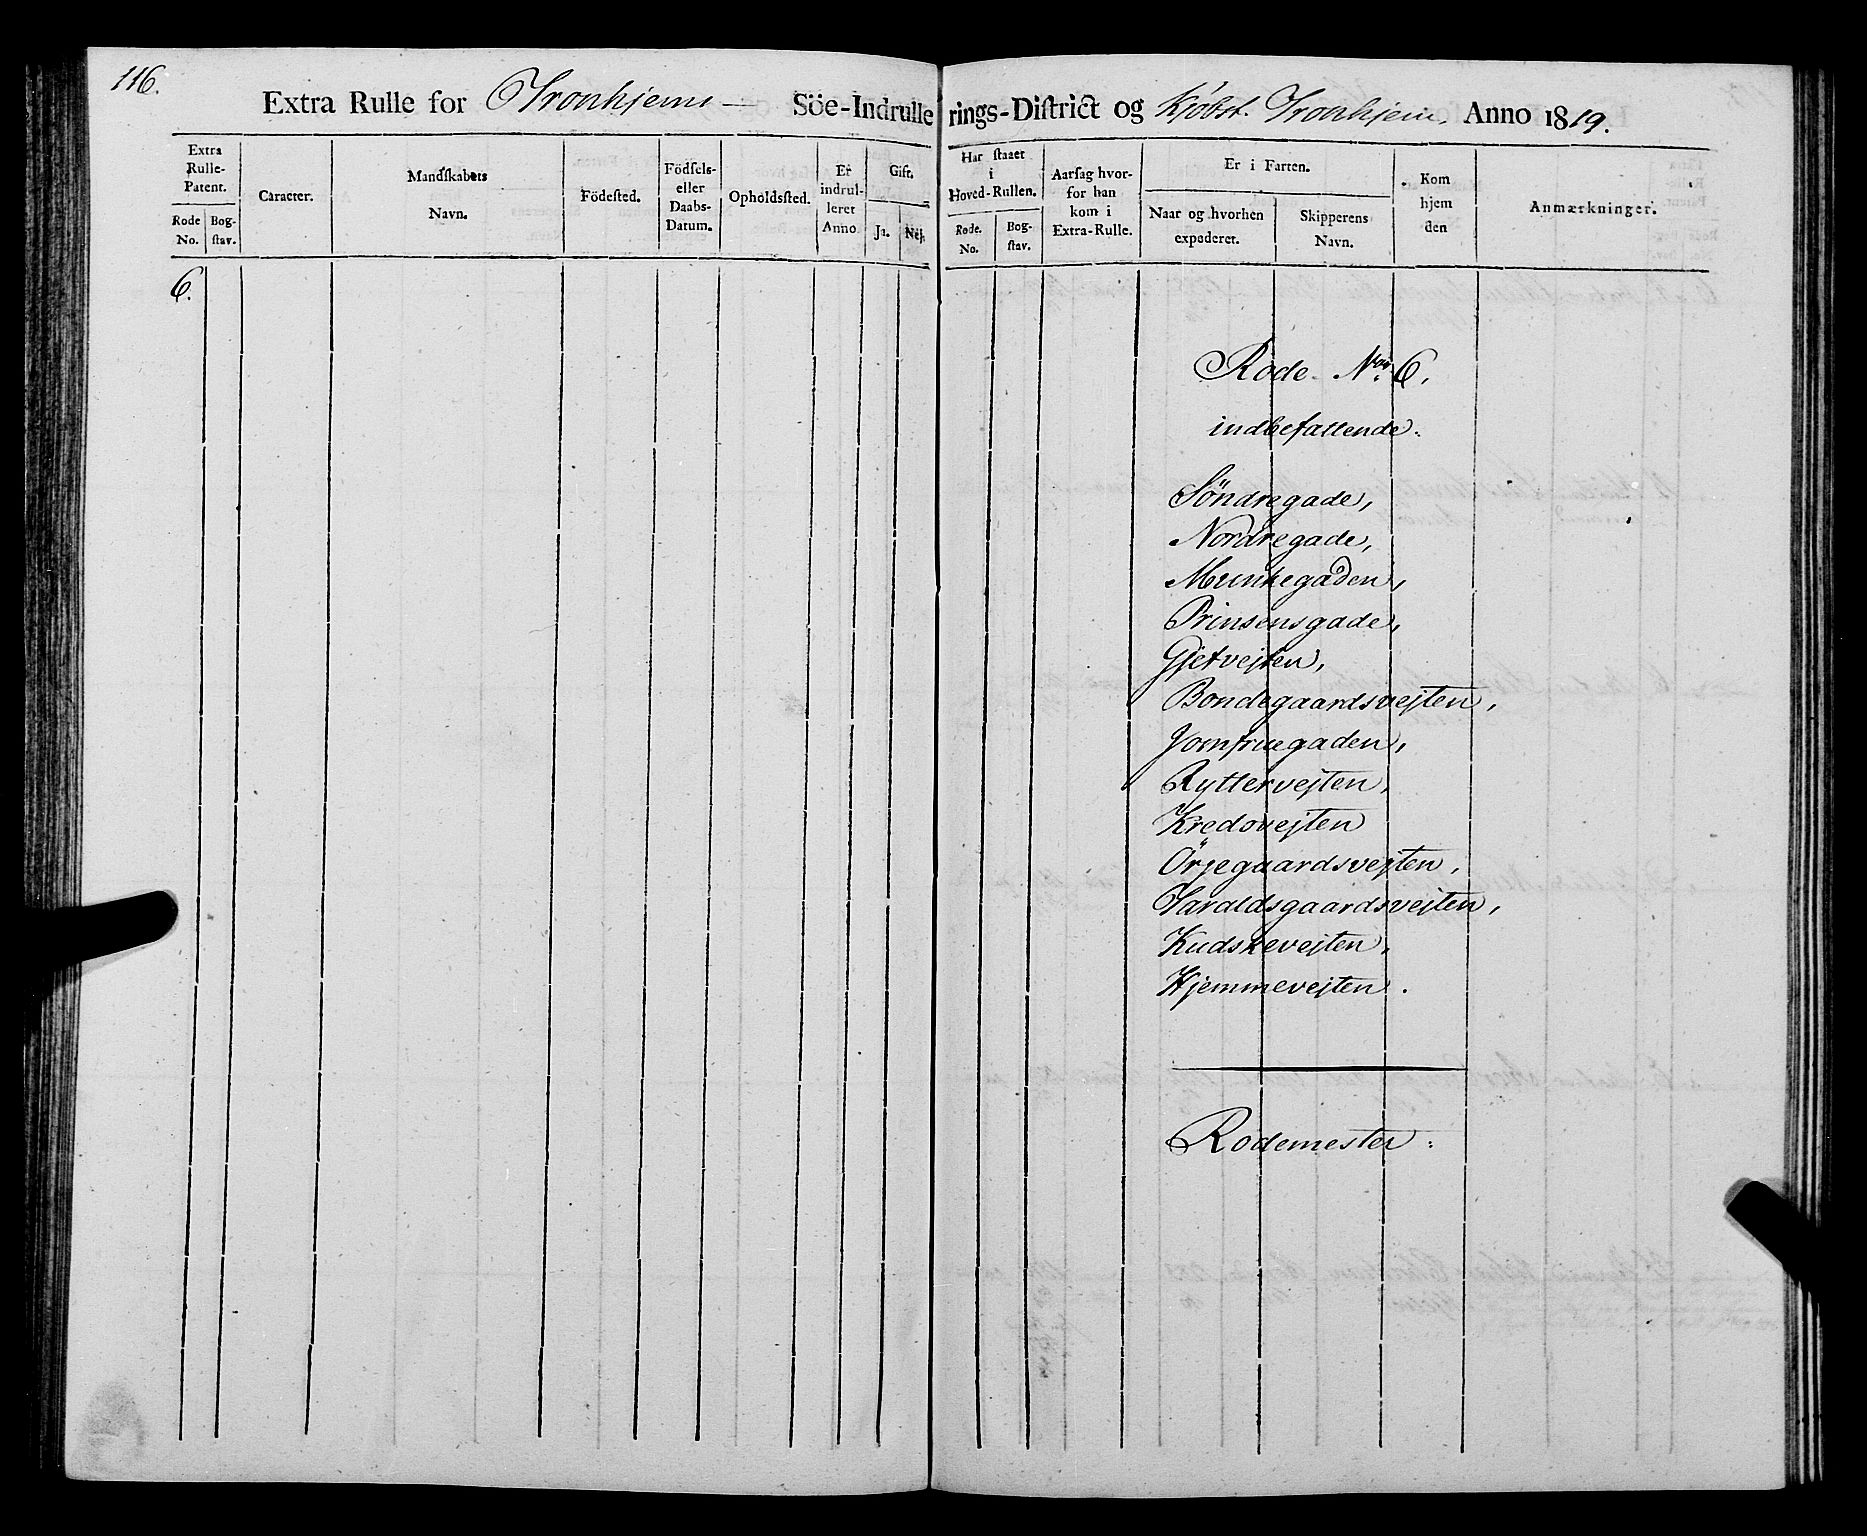 116.
Extra Rulle for Tronhjems Söe-Indrullerings-District og Kjöbst. Tronhjem, Anno 1819.
Extra Rulle-Patent.
Rode No.
Bogstav.
Caracter.
Mandskabets Navn.
Födested.
Födsels- eller Daabs-Datum.
Opholdssted.
Er indrulleret Anno.
Gift.
Ja.
Nej.
Har staaet i Hoved-Rullen.
Rode. No.
Bogstav.
Aarsag hvorfor han kom i Extra-Rulle.
Er i Farten.
Naar og hvorhen expederet.
Skipperens Navn.
Kom hjem den
Anmærkninger.
6.
Rode No. 6.
indbefattende.
Söndregade,
Nordregade,
Munkegaden,
Prinsensgade,
Gjetvejten,
Bondegaardsvejten,
Jomfruegaden,
Ryttervejten,
Kredovejten
Örjegaardsvejten,
Haraldsgaardsvejten,
Kudskevejten,
Hjemmevejten.
Rodemester: